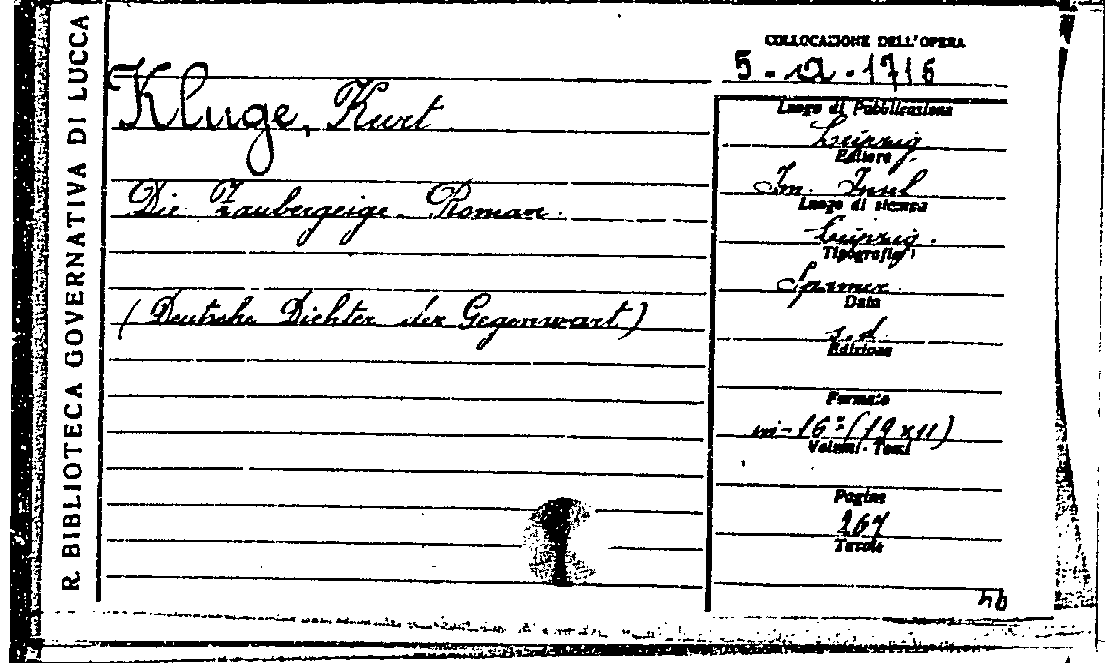 R. BIBLIOTECA GOVERNATIVA DI LUCCA
COLLOCAZIONE DELL'OPERA
5 - a - 1716
Kluge, Kurt
Die Zaubergeige. Roman.
(Deutsche Dichter der Gegenwart)
Luogo di Pubblicazione
Leipzig.
Editore
Im. Insel
Luogo di stampa
Leipzig.
Tipografia
Spamer
Data
s.d.
Edizione
Formato
in-16º (19x11)
Volumi - Tomi
Pagine
267
Tavole